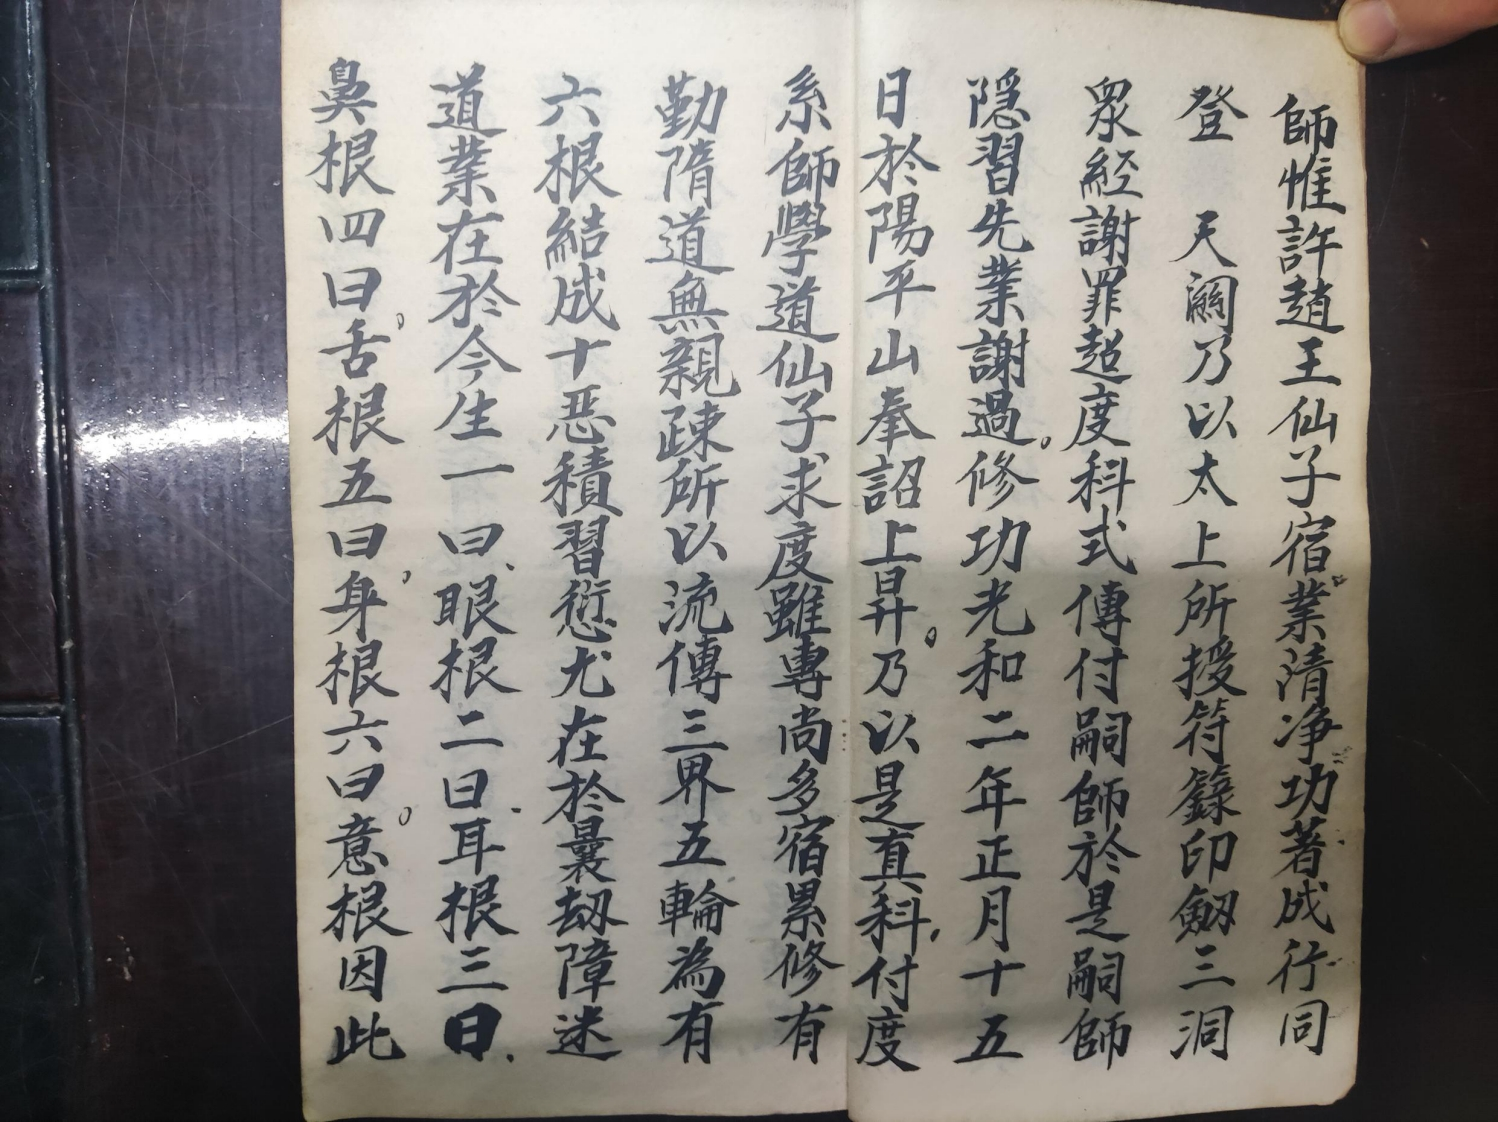 師惟許趙王仙子宿業清净功著成行同
登　天闕乃以太上所授符籙印劔三洞
眾經謝罪超度科式傳付嗣師於是嗣師
隠習先業謝過。修功光和二年正月十五
日於陽平山奉詔上昇。乃以是真科付度
系師學道仙子求度雖專尚多宿累修有
勤隋道無親疎所以流傳三界五輪為有
六根結成十恶積習愆尤在於曩劫障迷
道業在於今生一曰眼根二曰耳根三曰
鼻根四曰舌根五曰身根六曰意根因此